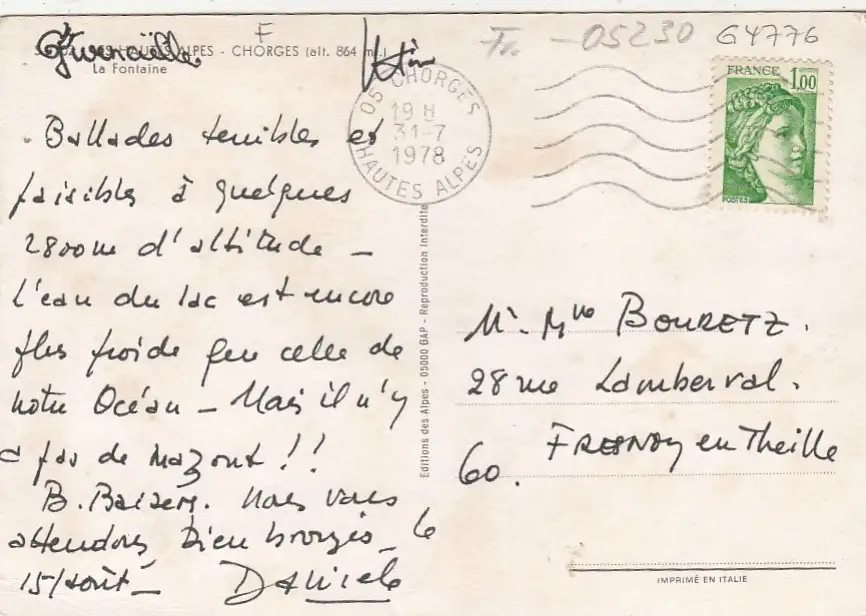 F
Fr. -05230 G4776
HAUTES ALPES - CHORGES (alt. 864 m.)
La Fontaine
Gwenaëlle
05 CHORGES
19 H
31-7
1978
HAUTES ALPES
FRANCE 1,00
POSTES
Ballades terribles et
paisibles à quelques
2800m d'altitude -
L'eau du lac est encore
plus froide que celle de
notre Océan - Mais il n'y
a pas de mazout !!
B. Baisers. Nous vous
attendons bien bronzés - le
15/Août - Daniele
Editions des Alpes - 05000 GAP - Reproduction interdite
Mr. Mme BOURETZ.
28 rue Lamberval.
FRESNOY en Thelle
60.
IMPRIMÉ EN ITALIE